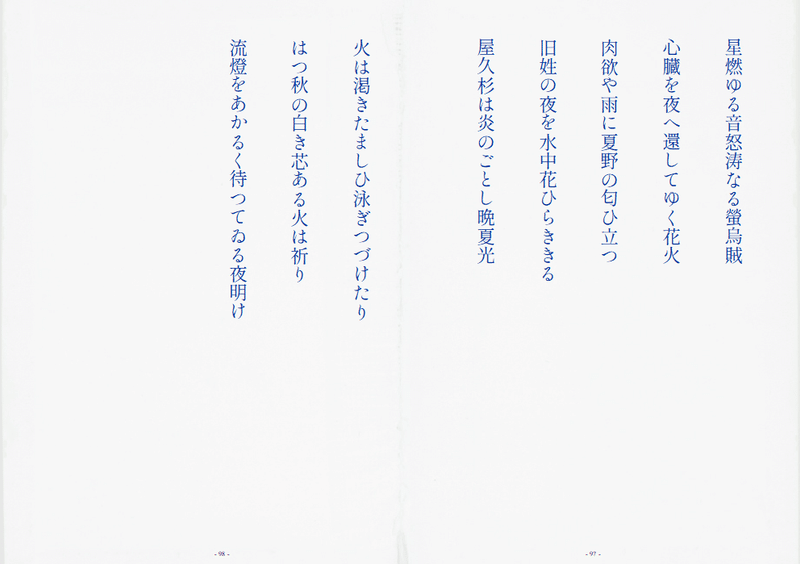 星燃ゆる音怒涛なる螢烏賊
心臓を夜へ還してゆく花火
肉欲や雨に夏野の匂ひ立つ
旧姓の夜を水中花ひらききる
屋久杉は炎のごとし晩夏光
- 97 -
火は渇きたましひ泳ぎつづけたり
はつ秋の白き芯ある火は祈り
流燈をあかるく待つてゐる夜明け
- 98 -